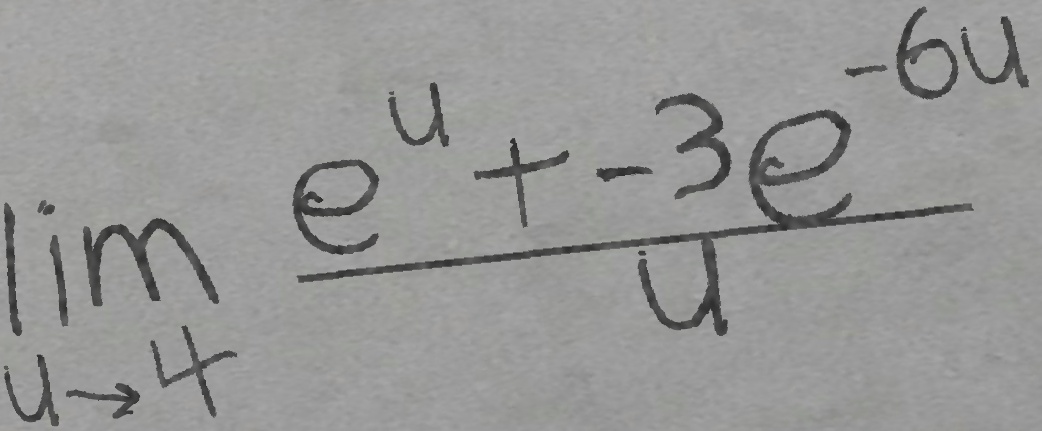 \lim_{u \to 4} \frac{e^{u} + -3e^{-6u}}{u}